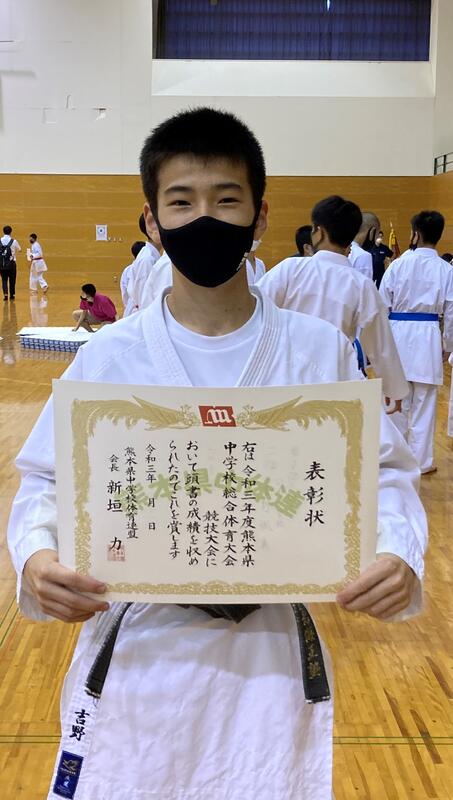 表彰状
右は令和三年度熊本県
中学校総合体育大会
競技大会に
おいて頭書の成績を収め
られたのでこれを賞します
令和三年 月 日
熊本県中学校体育連盟
会長 新垣 力
吉野